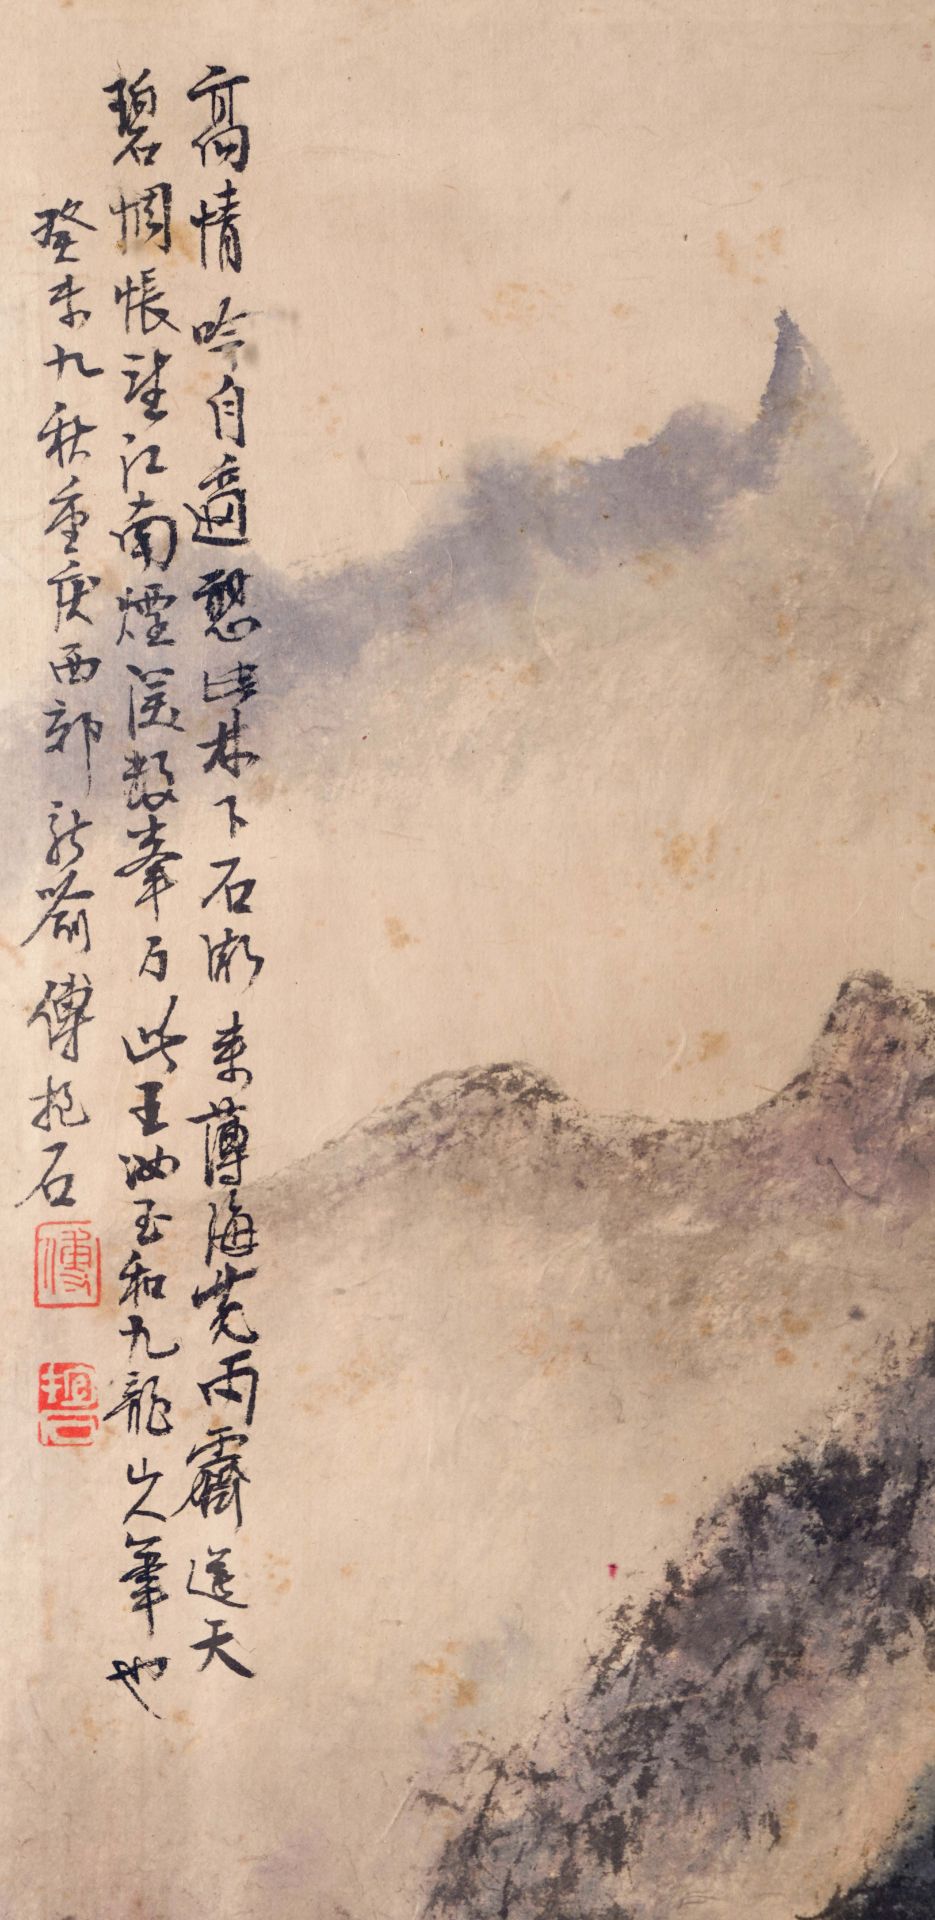 高情吟自適憩此林下石漸來薄海荒雨霽遥天
碧惆悵望江南煙深數峯夕此王汝玉和九龍山人筆也
癸未九秋重慶西郊新喻傅抱石
傅
抱石